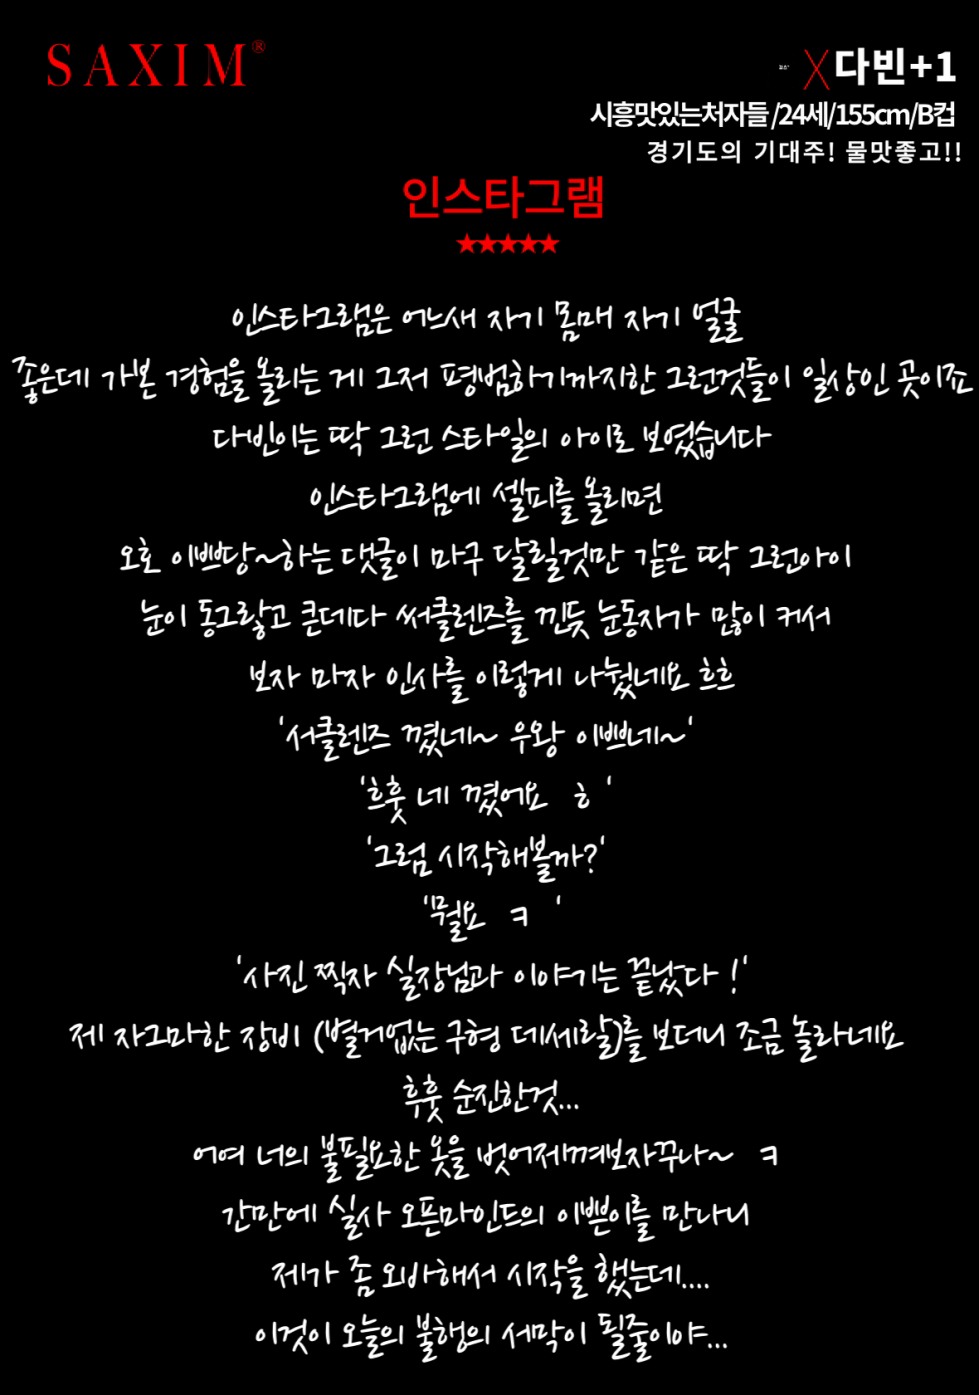 SAXIM®
X 다빈+1
시흥맛있는처자들/24세/155cm/B컵
경기도의 기대주! 물맛좋고!!
인스타그램
★★★★★
인스타그램은 어느새 자기 몸매 자기 얼굴
좋은데 가본 경험을 올리는 게 그저 평범하기까지한 그런것들이 일상인 곳이죠
다빈이는 딱 그런 스타일의 아이로 보였습니다
인스타그램에 셀피를 올리면
오호 이쁘당~하는 댓글이 마구 달릴것만 같은 딱 그런아이
눈이 동그랗고 큰데다 써클렌즈를 낀듯 눈동자가 많이 커서
보자 마자 인사를 이렇게 나눴네요 흐흐
'서클렌즈 꼈네~ 우왕 이쁘네~'
'흐흣 네 꼈어요 ㅎ '
'그럼 시작해볼까?'
'뭘요 ㅋ '
'사진 찍자 실장님과 이야기는 끝났다 !'
제 자그마한 장비 (별거없는 구형 데세랄)를 보더니 조금 놀라네요
후훗 순진한것...
어여 너의 불필요한 옷을 벗어제껴보자꾸나~ ㅋ
간만에 실사 오픈마인드의 이쁜이를 만나니
제가 좀 오바해서 시작을 했는데....
이것이 오늘의 불행의 서막이 될줄이야...